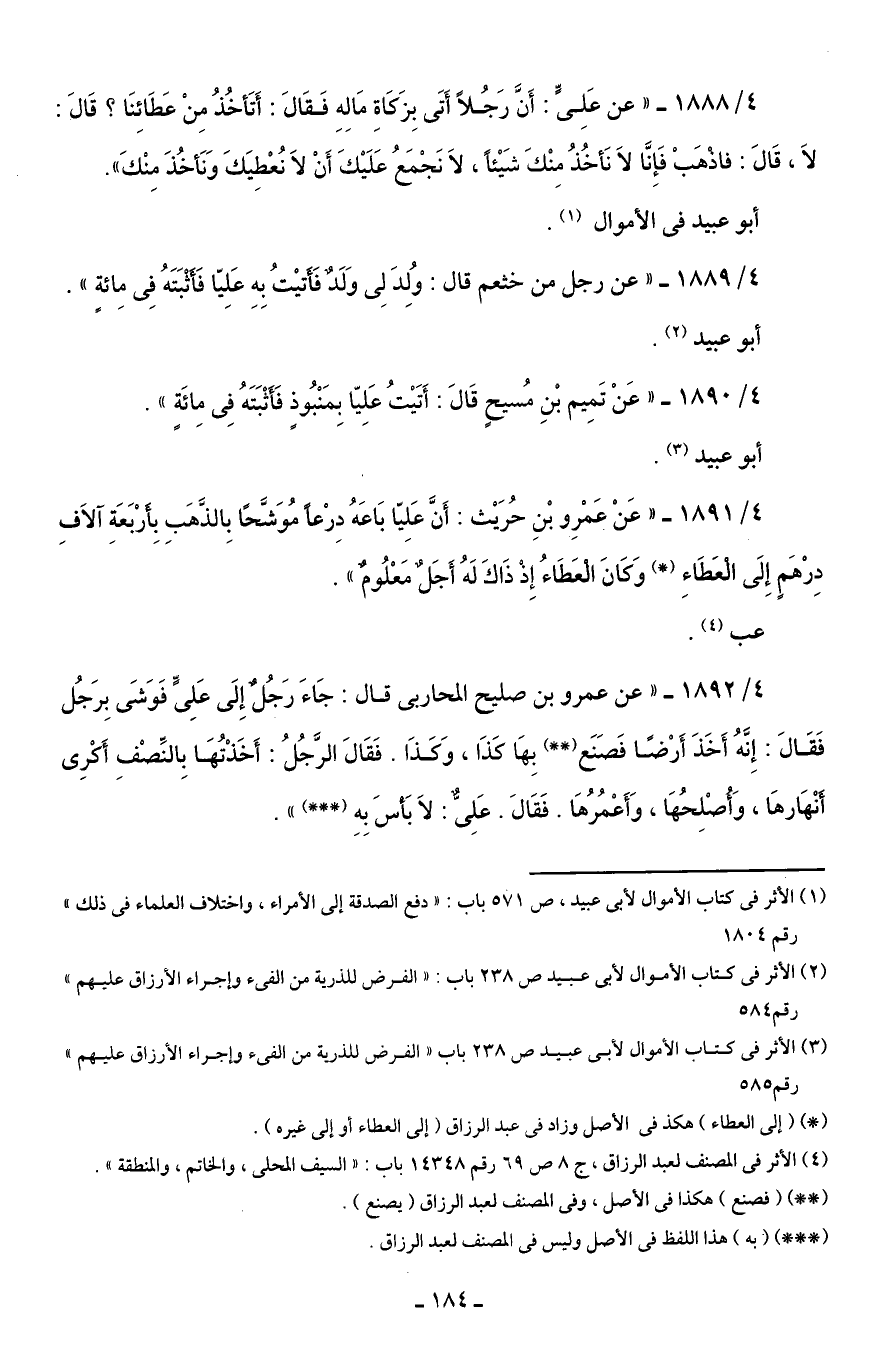 ٤/ ١٨٨٨ ـ « عن عَلِىٍّ : أَنَّ رَجُلاً أَتَى بِزَكَاةِ مَالِهِ فَقَالَ : أَتَأخُذُ مِنْ عَطَائِنَا ؟ قَالَ :
لاَ ، قَالَ : فاذْهَبْ فَإِنَّا لاَ نَأخُذُ مِنْكَ شَيْئاً ، لاَ نَجْمَعُ عَلَيْكَ أَنْ لاَ نُعْطِيَكَ وَنَأخُذَ مِنْكَ».
أبو عبيد فى الأموال (١) .
٤/ ١٨٨٩ ـ « عن رجل من خثعم قال : وُلِدَ لِى وَلَدٌ فَأَتَيْتُ بِهِ عَلِيّا فَأَثْبَتَهُ فِى مِائةٍ » .
أبو عبيد (٢) .
٤/ ١٨٩٠ ـ « عَنْ تَمِيمِ بْنِ مُسيحٍ قَالَ : أَتَيْتُ عَلِيّا بِمَنْبُوذٍ فَأَثْبَتَهُ فِى مِائَةٍ » .
أبو عبيد (٣) .
٤/ ١٨٩١ ـ « عَنْ عَمْرِو بْنِ حُرَيْث : أَنَّ عَلِيّا بَاعَهُ دِرْعاً مُوَشَّحًا بِالذَّهَبِ بِأَرْبَعَةِ آلاَفِ
دِرْهَمٍ إِلَى الْعَطَاءِ (*) وَكَانَ الْعَطَاءُ إِذْ ذَاكَ لَهُ أَجَلٌ مَعْلُومٌ » .
عب (٤) .
٤/ ١٨٩٢ ـ « عن عمرو بن صليح المحاربى قال : جَاءَ رَجُلٌ إِلَى عَلِىٍّ فَوَشَى بِرَجُل
فَقَالَ : إِنَّهُ أَخَذَ أَرْضًا فَصَنَع(**) بِهَا كَذَا ، وَكَذَا . فَقَالَ الرَّجُلُ : أَخَذْتُهَا بِالنِّصْفِ أَكْرِى
أَنْهَارِهَا ، وَأُصْلِحُهَا ، وَأَعْمُرُهَا . فَقَالَ . عَلِىٌّ : لاَ بَأسَ بِهِ (***) » .
(١) الأثر فى كتاب الأموال لأبى عبيد ، ص ٥٧١ باب : « دفع الصدقة إلى الأمراء ، واختلاف العلماء فى ذلك »
رقم ١٨٠٤
(٢) الأثر فى كتاب الأموال لأبى عبيد ص ٢٣٨ باب : « الفرض للذرية من الفىء وإجراء الأرزاق عليهم »
رقم٥٨٤
(٣) الأثر فى كتاب الأموال لأبى عبيد ص ٢٣٨ باب « الفرض للذرية من الفىء وإجراء الأرزاق عليهم »
رقم٥٨٥
(*) ( إلى العطاء ) هكذ فى الأصل وزاد فى عبد الرزاق ( إلى العطاء أو إلى غيره ) .
(٤) الأثر فى المصنف لعبد الرزاق ، ج ٨ ص ٦٩ رقم ١٤٣٤٨ باب : « السيف المحلى ، والخاتم ، والمنطقة » .
(**) ( فصنع ) هكذا فى الأصل ، وفى المصنف لعبد الرزاق ( يصنع ) .
(***) ( به ) هذا اللفظ فى الأصل وليس فى المصنف لعبد الرزاق .
ـ ١٨٤ ـ